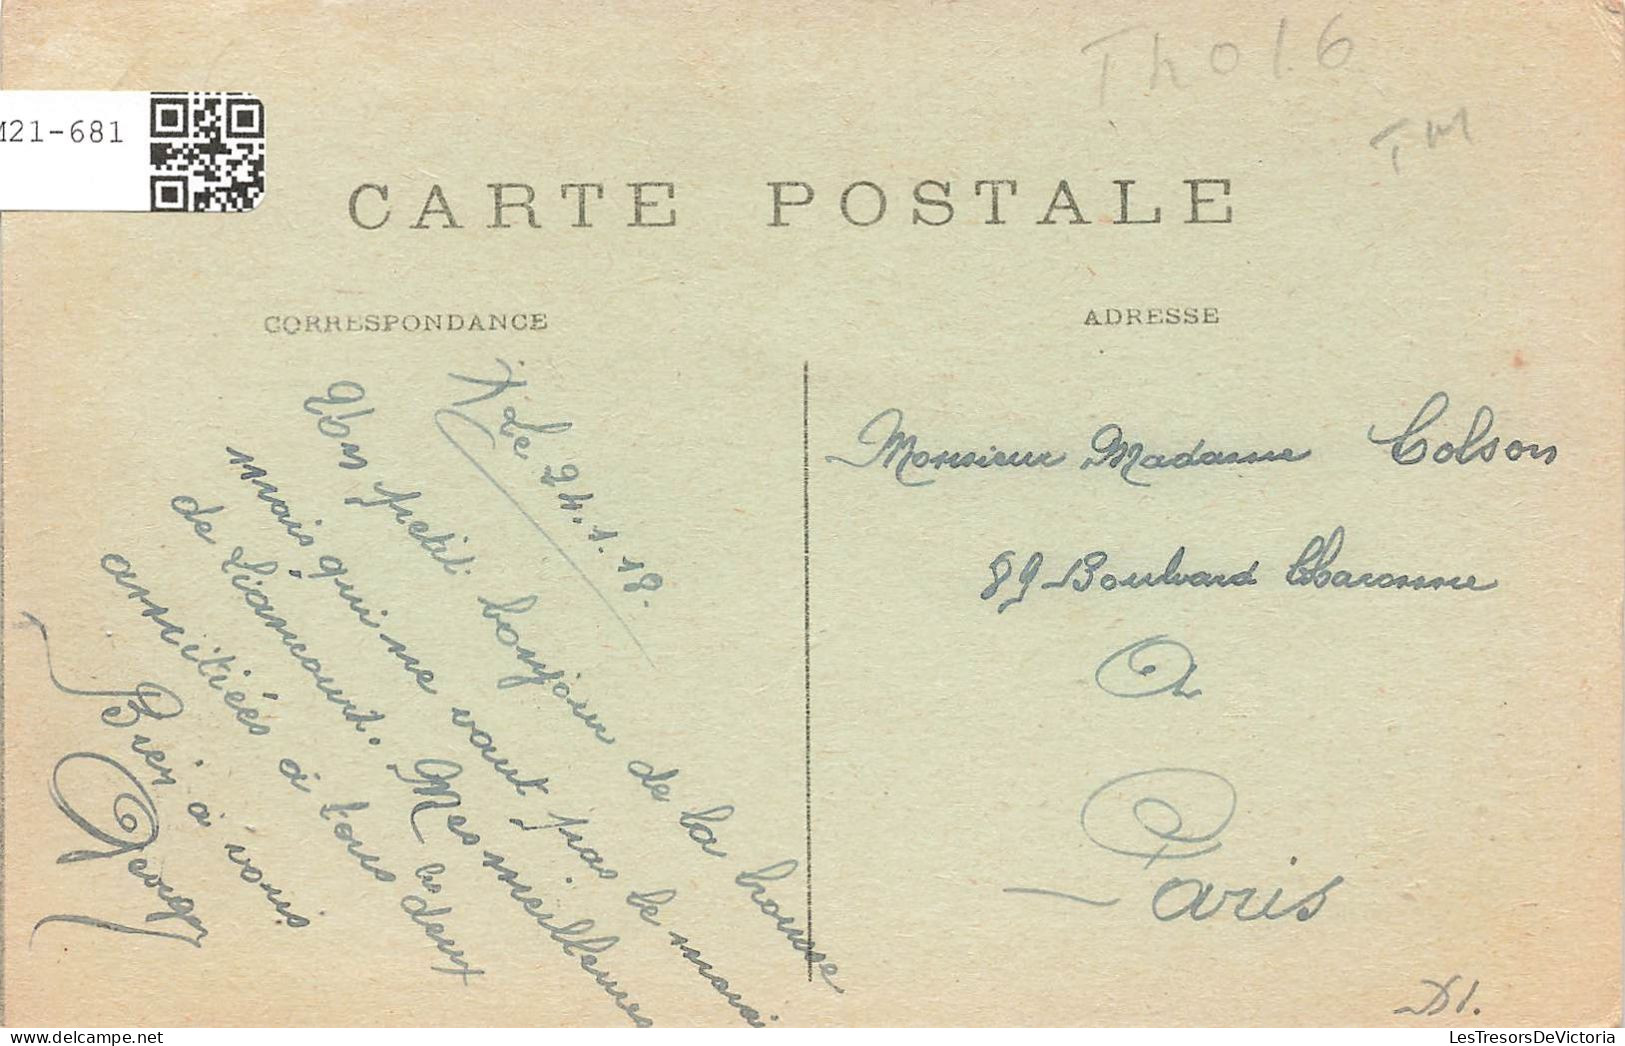 Th016
TM
M21-681
CARTE POSTALE
CORRESPONDANCE
ADRESSE
Le 24.1.18.
Un petit bonjour de la brousse
mais qui ne vaut pas le marai
de Liancourt. Mes meilleures
amitiées à tous les deux
Bien à vous
Georges
Monsieur Madame Colson
89 Boulvard Charonne
A
Paris
D1.
LesTresorsDeVictoria